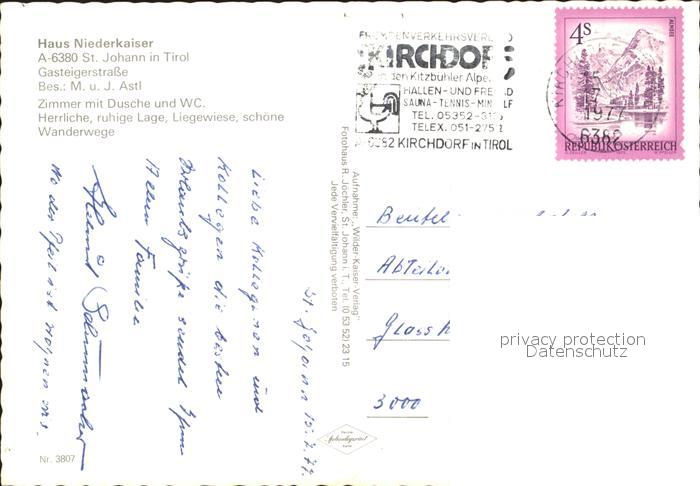 Haus Niederkaiser
A-6380 St. Johann in Tirol
Gasteigerstraße
Bes.: M. u. J. Astl
Zimmer mit Dusche und WC.
Herrliche, ruhige Lage, Liegewiese, schöne
Wanderwege
KIRCHDORF
in den Kitzbühler Alpen
HALLEN- UND FREI
SAUNA-TENNIS-MIN LF
TEL. 05352-31
TELEX. 051-275
A-6382 KIRCHDORF IN TIROL
4S
ALMSEE
1977
6382
REPUBLIK ÖSTERREICH
St. Johann 15.7.77.
Liebe Kolleginnen und
Kollegen die besten
Urlaubsgrüße sendet Ihnen
Allen Familie
Helmut
Wo der Pfeil ist wohnen wir.
Aufnahme: „Wilder-Kaiser-Verlag"
Fotohaus R. Jöchler, St. Johann i. T., Tel. (0 53 52) 23 15
Jede Vervielfältigung verboten
Beutel
Abteilu
Glassh
3000
privacy protection
Datenschutz
Nr. 3807